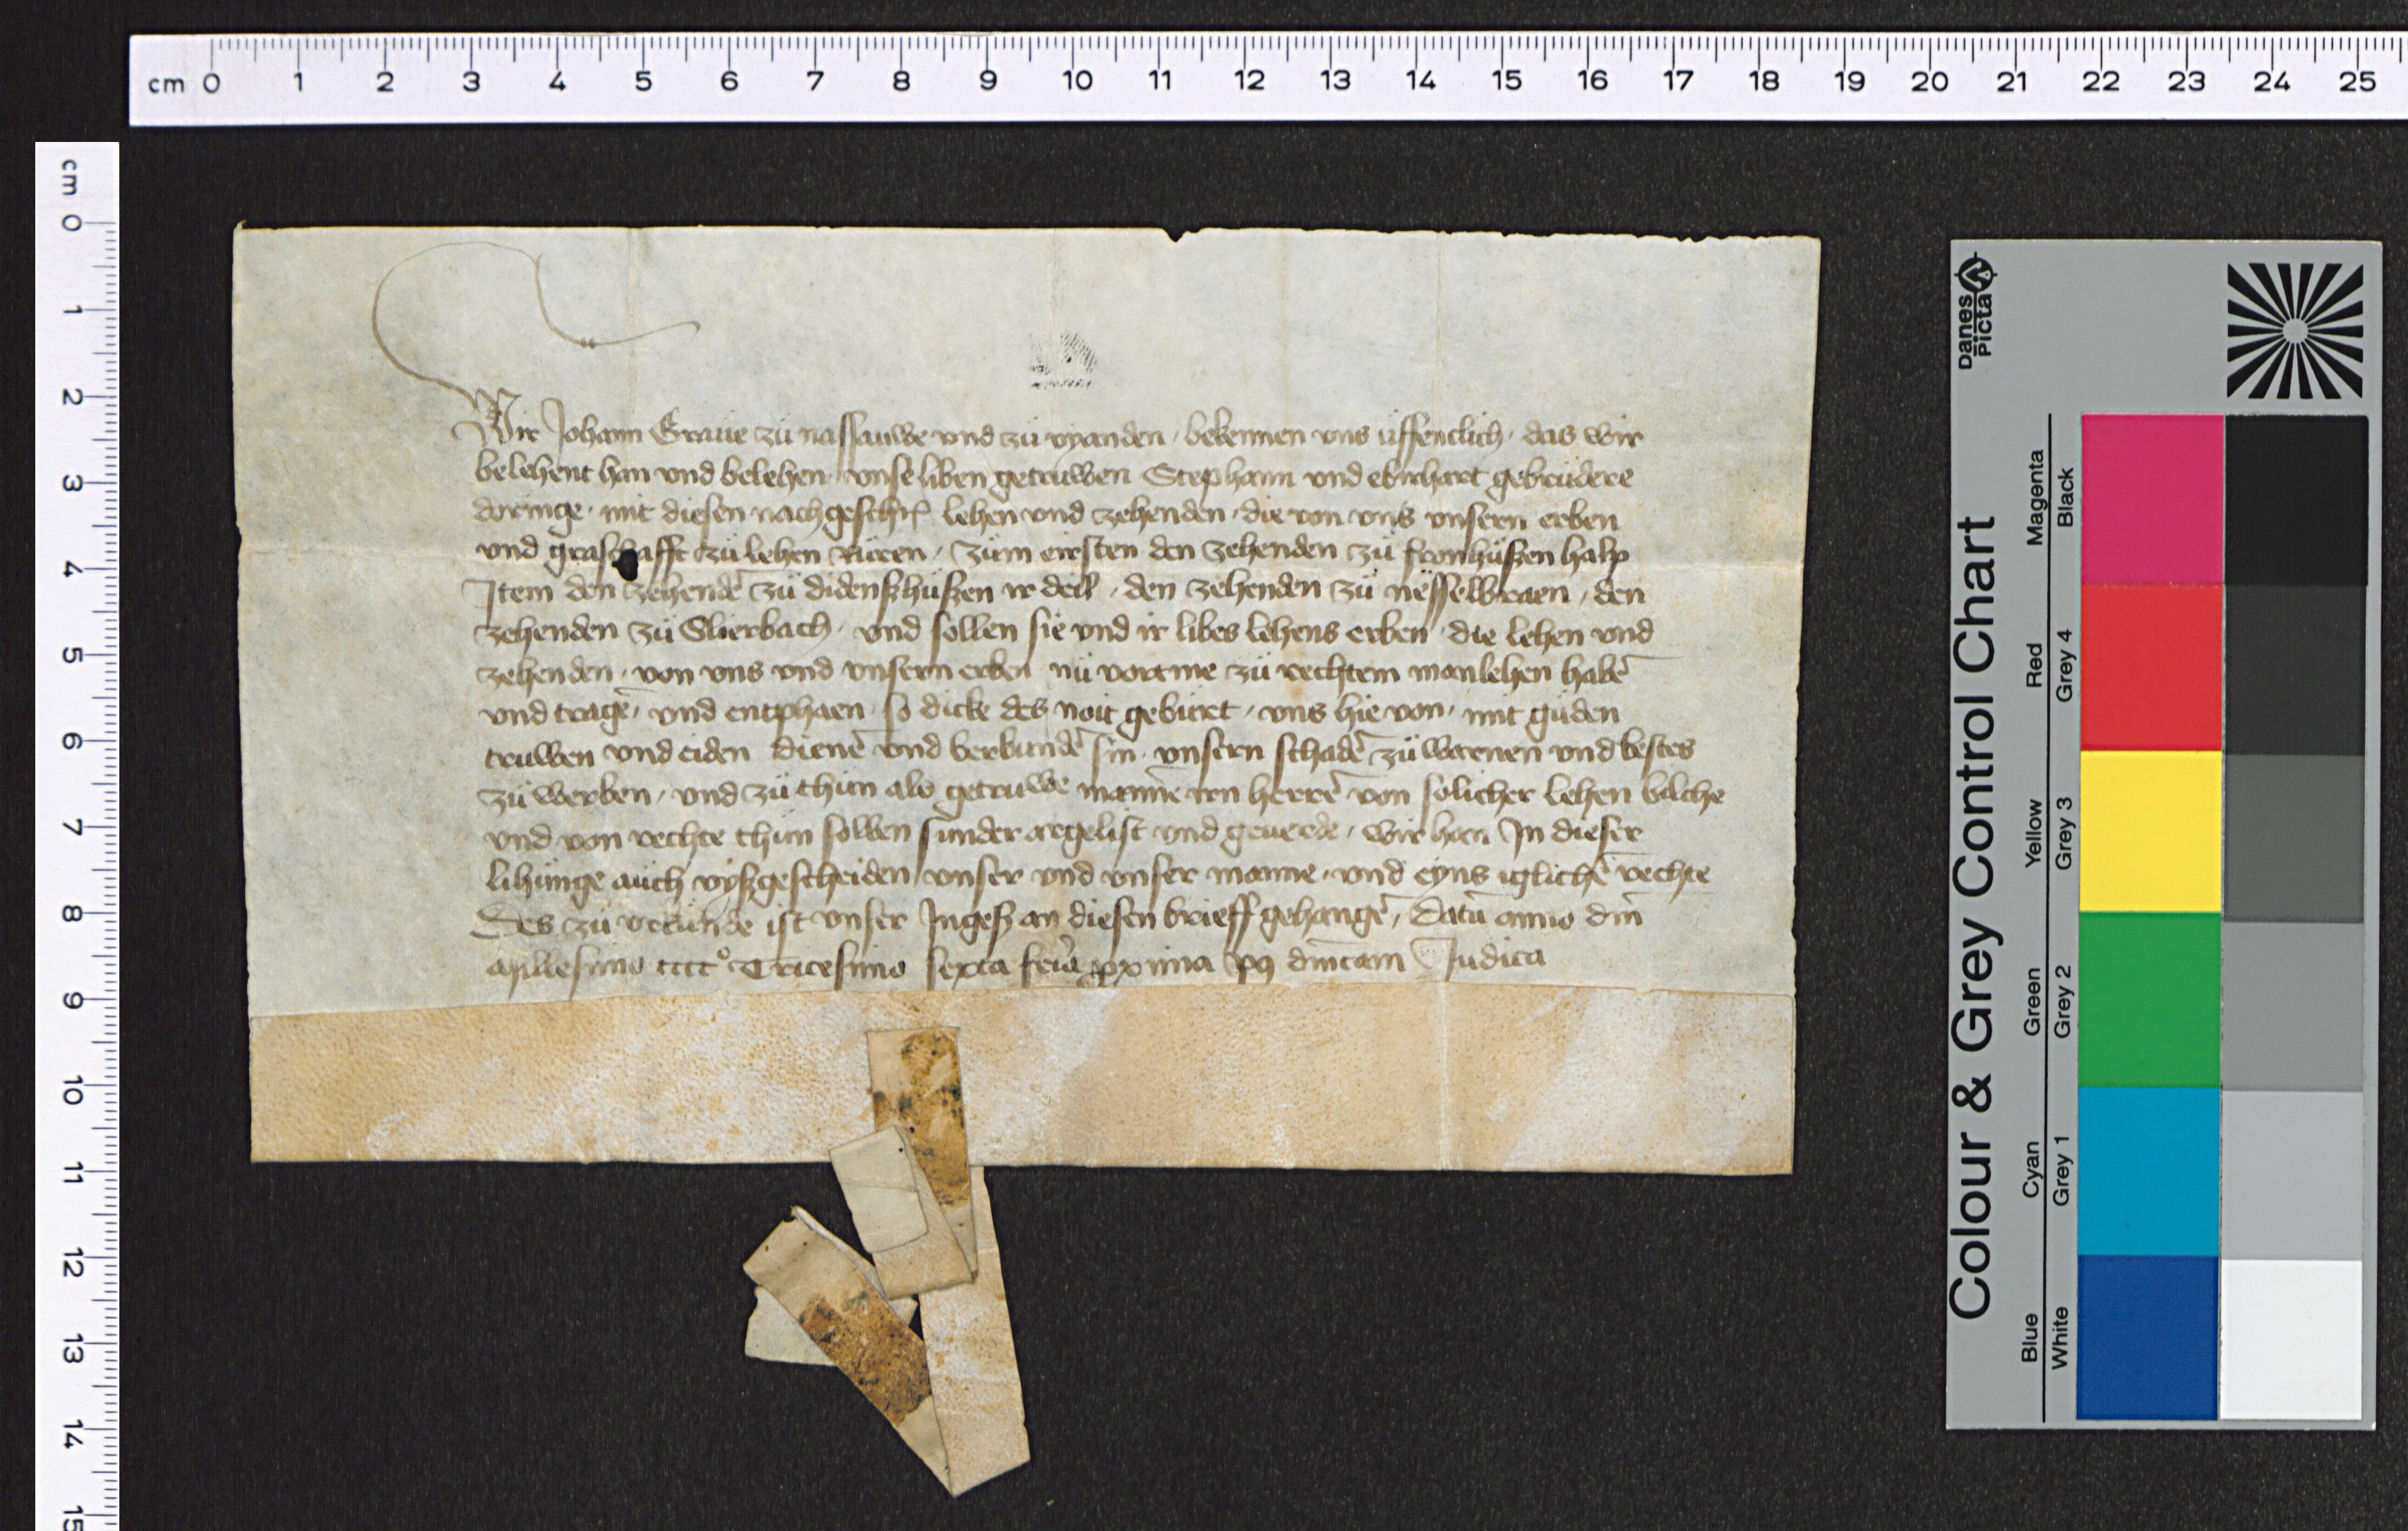 cm 0 1 2 3 4 5 6 7 8 9 10 11 12 13 14 15 16 17 18 19 20 21 22 23 24 25
cm 0 1 2 3 4 5 6 7 8 9 10 11 12 13 14 15
Wir Johann Graue zü nassauwe vnd zü vyanden, bekennen vns üffentlich, das wir
belehent han vnd belehen vnse liben getruwen Stephann vnd ebirhart gebrüdere
doringe, mit diesen nachgeschr lehen vnd zehenden, die von vns vnsern erben
vnd grafschafft zü lehen rüren, züm eirsten den zehenden zü fronhüszen halp
Item den zehendē zü didenszhüszen ir deil, den zehenden zü nesselbraen, den
zehenden zü Slierbach, vnd sollen sie vnd ir libes lehens erben, die lehen vnd
zehenden, von vns vnd vnsern erben nü vortme zü rechtem manlehen habē
vnd tragē, vnd entphaen so dicke des noit gebürt, vns hie von, mit güden
truwen vnd eiden dienē vnd verbundē sin, vnsern schadē zü warnen vnd bestes
zü werben, vnd zü thün als getruwe mannē irn herrē von solicher lehen biliche
vnd von rechte thün sollen sunder argelist vnd geuerde, wir han In dieser
lihünge aüch vyszgescheiden vnser vnd vnser manne, vnd eyns iglichē rechte
Des zü vrkünde ist vnser Ingesz an diesen brieff gehangē, Datū anno dm̄
Millesimo cccc° Tricesimo sexta feria pxima p9 dm̄cam Judica
Danes
Picta
Colour & Grey Control Chart
Blue Cyan Green Yellow Red Magenta
White Grey 1 Grey 2 Grey 3 Grey 4 Black